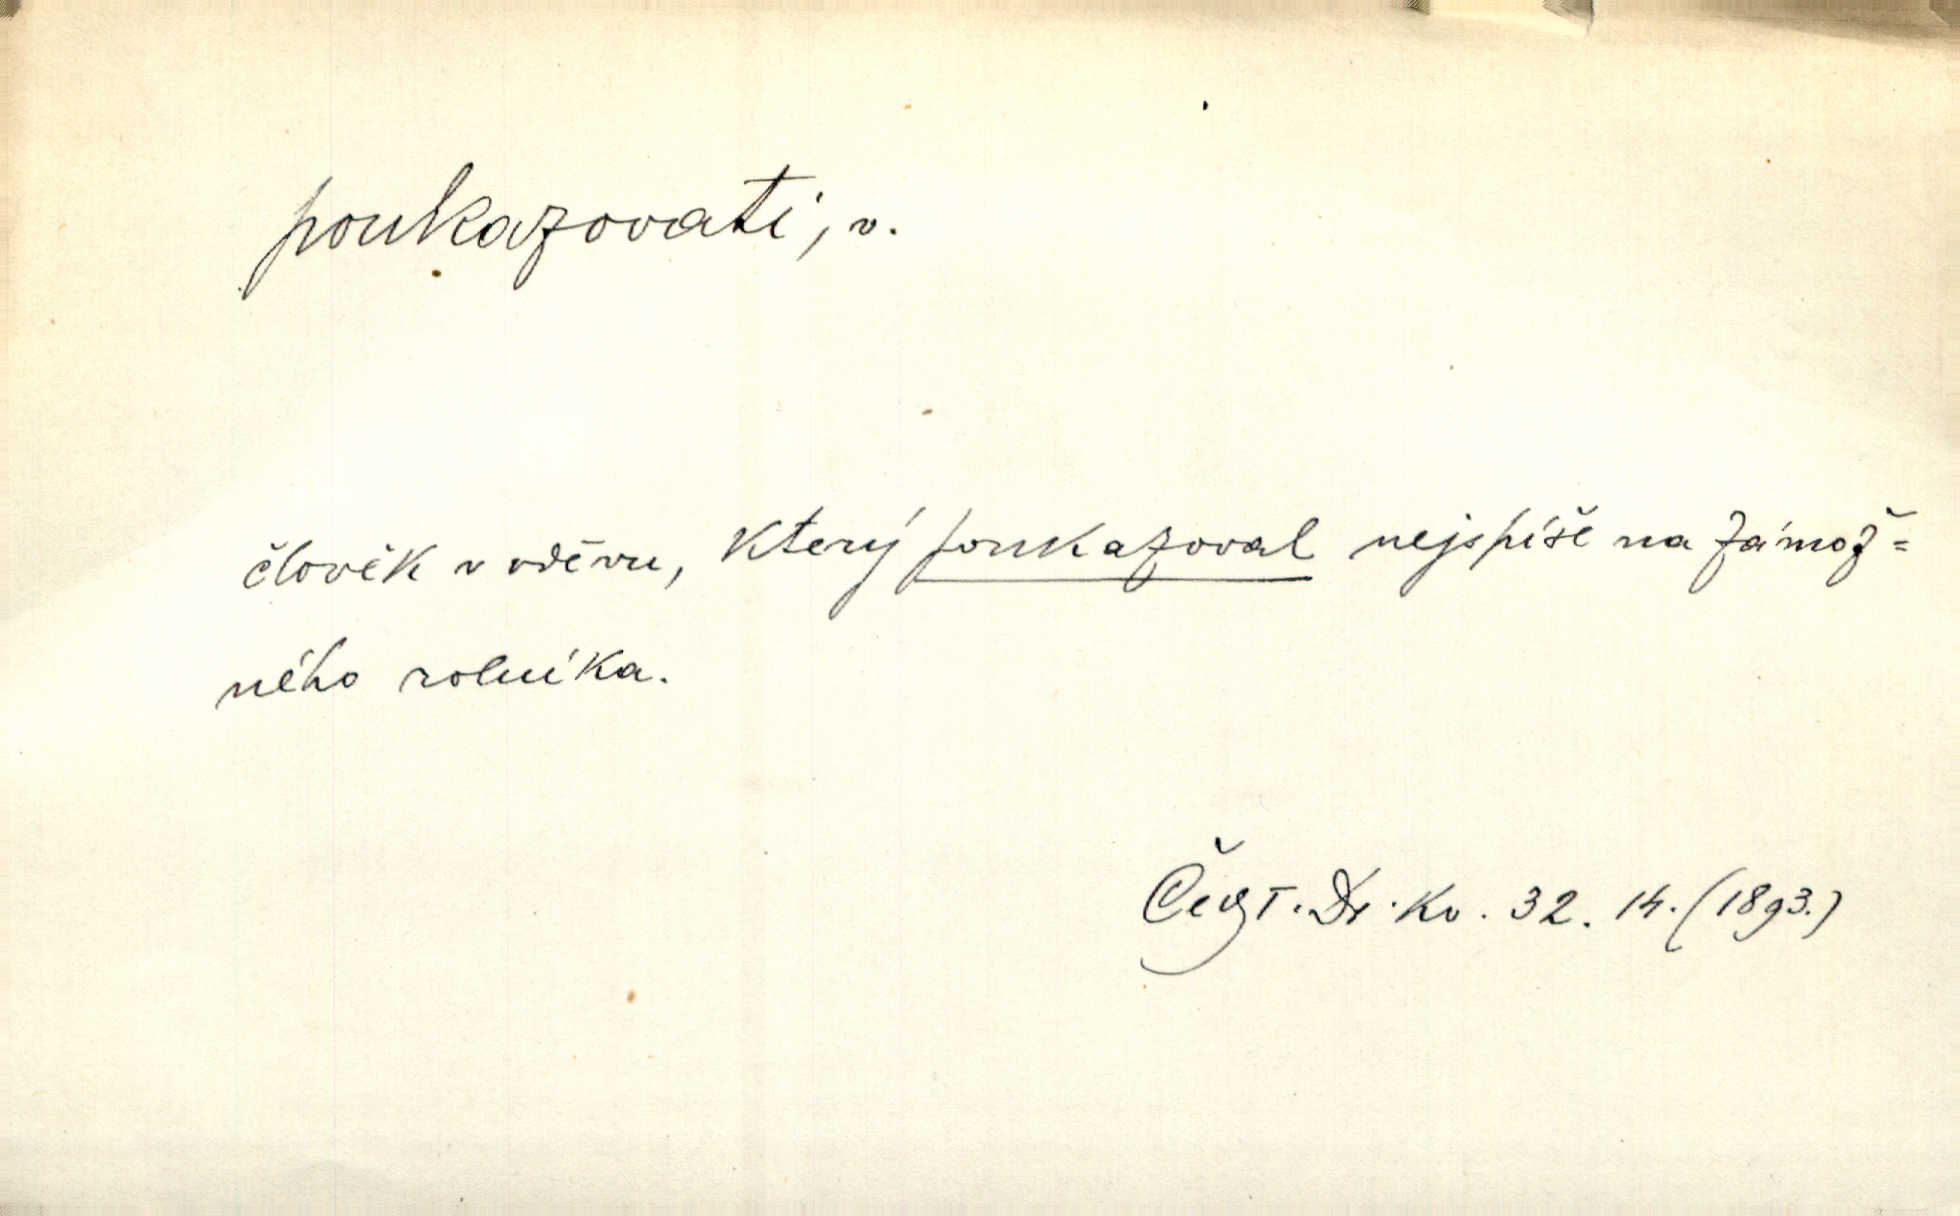 poukazovati, v.
člověk v oděvu, který poukazoval nejspíše na zámož=
ného rolníka.
Kv. 32. 14. (1893.)